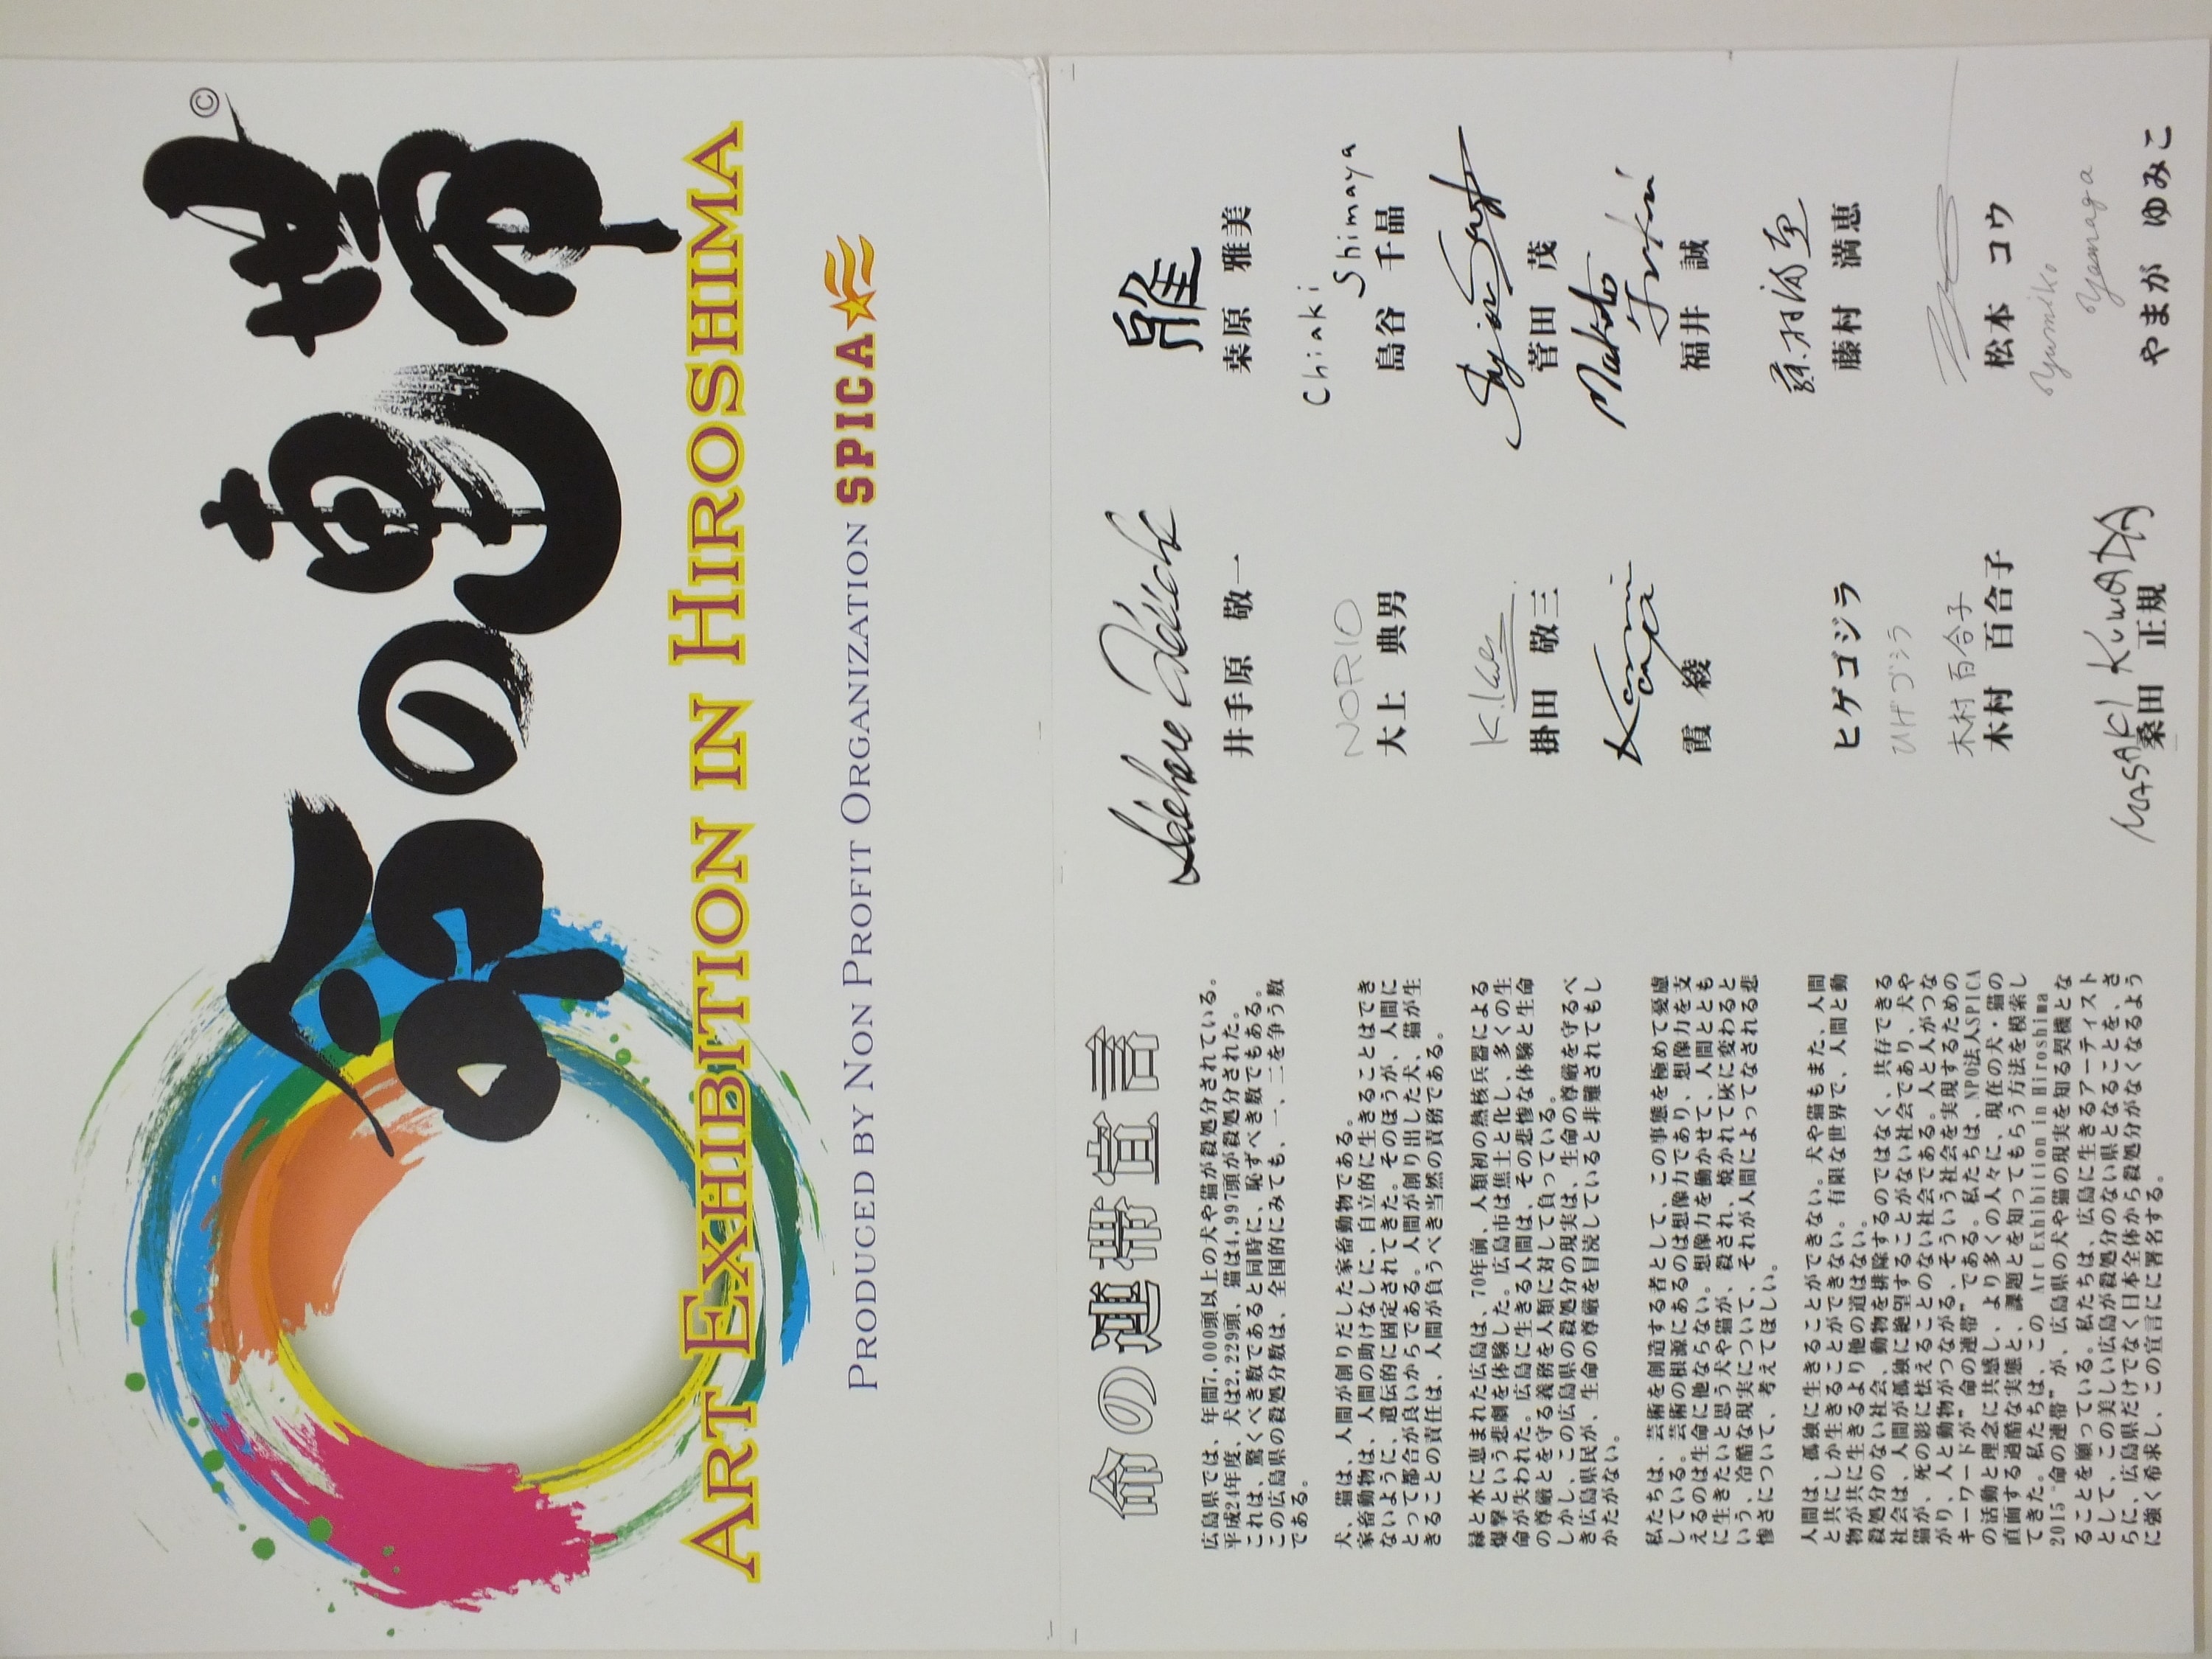 命の連帯
©
ART EXHIBITION IN HIROSHIMA
PRODUCED BY NON PROFIT ORGANIZATION SPICA
命の連帯宣言
広島県では、年間7,000頭以上の犬や猫が殺処分されている。
平成24年度、犬は2,229頭、猫は4,997頭が殺処分された。
これは、驚くべき数であると同時に、恥ずべき数でもある。
この広島県の殺処分数は、全国的にみても、一、二を争う数
である。
犬、猫は、人間が創りだした家畜動物である。
家畜動物は、人間の助けなしに、自立的に生きることはでき
ないように、遺伝的に固定されてきた。そのほうが、人間に
とって都合が良いからである。人間が創り出した犬、猫が生
きることの責任は、人間が負うべき当然の責務である。
緑と水に恵まれた広島は、70年前、人類初の熱核兵器による
爆撃という悲劇を体験した。広島市は焦土と化し、多くの生
命が失われた。広島に生きる人間は、その悲惨な体験と生命
の尊厳とを守る義務を人類に対して負っている。
しかし、この広島県の殺処分の現実は、生命の尊厳を守るべ
き広島県民が、生命の尊厳を冒涜していると非難されてもし
かたがない。
私たちは、芸術を創造する者として、この事態を極めて憂慮
している。芸術の根源にあるのは想像力であり、想像力を支
えるのは生命に他ならない。想像力を働かせて、人間ととも
に生きたいと思う犬や猫が、殺され、焼かれて灰に変わると
いう、冷酷な現実について、それが人間によってなされる悲
惨さについて、考えてほしい。
人間は、孤独に生きることができない。犬や猫もまた、人間
と共にしか生きることができない。有限な世界で、人間と動
物が共に生きるより他の道はない。
殺処分のない社会、動物を排除するのではなく、共存できる
社会は、人間が孤独に絶望することがない社会であり、犬や
猫が、死の影に怯えることのない社会である。人と人がつな
がり、人と動物がつながる、そういう社会を実現するための
キーワードが”命の連帯”である。私たちは、NPO法人SPICA
の活動と理念に共感し、より多くの人々に、現在の犬・猫の
直面する過酷な実態と、課題とを知ってもらう方法を模索し
てきた。私たちは、この Art Exhibition in Hiroshima
2015“命の連帯”が、広島県の犬や猫の現実を知る契機とな
ることを願っている。私たちは、広島に生きるアーティスト
として、この美しい広島が殺処分のない県となることを、さ
らに、広島県だけでなく日本全体から殺処分がなくなるよう
に強く希求し、この宣言にに署名する。
井手原 敬一
NORIO
大上 典男
掛田 敬三
霞 綾
ヒゲゴジラ
ひげゴジラ
木村百合子
木村 百合子
MASAKI KUWADA
桑田 正規
雅
桒原 雅美
Chiaki Shimaya
島谷 千晶
菅田 茂
Makoto
福井 誠
藤村 満恵
松本 コウ
Yumiko Yamaga
やまが ゆみこ